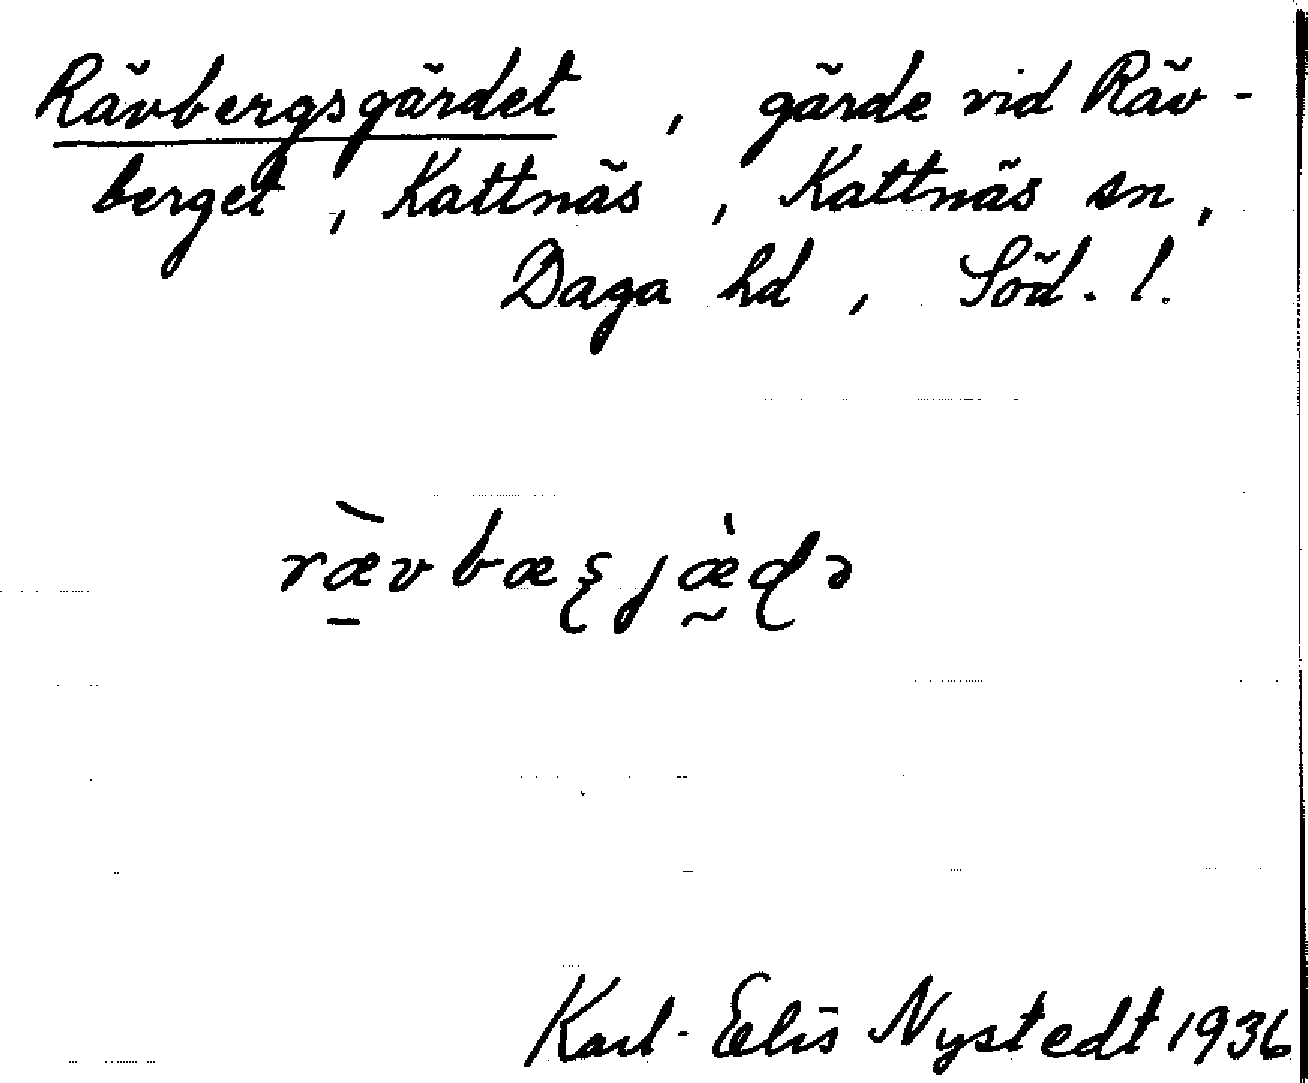 Rävbergsgärdet, gärde vid Räv-
berget, Kattnäs, Kattnäs sn,
Daga hd, Söd. l.
ræ̠̀vbæʂjæ̰̀ɖə
Karl-Elis Nystedt 1936